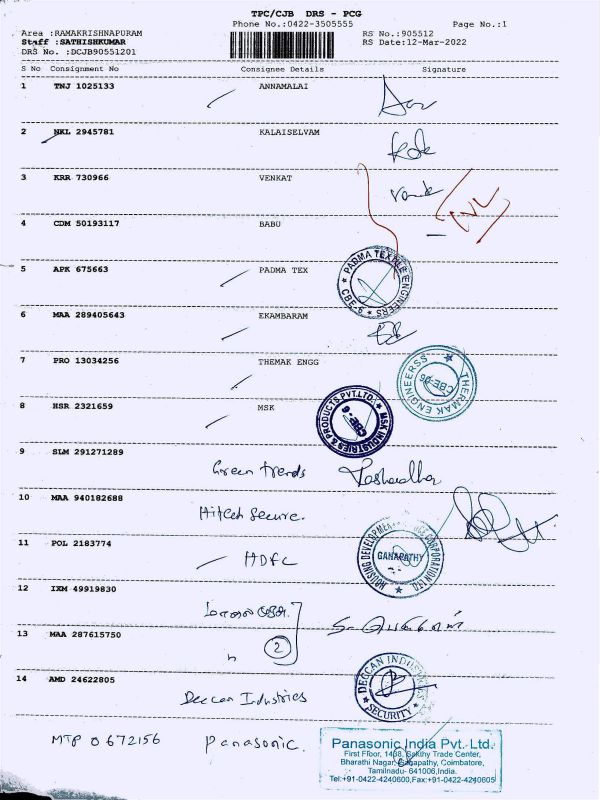 TPC/CJB DRS - PCG
Phone No.:0422-3505555 Page No.:1
Area :RAMAKRISHNAPURAM RS No.:905512
Staff :SATHISHKUMAR RS Date:12-Mar-2022
DRS No. :DCJB90551201
S No Consignment No Consignee Details Signature
1 TNJ 1025133 ANNAMALAI
2 NKL 2945781 KALAISELVAM
3 KRR 730966 VENKAT
4 CDM 50193117 BABU
5 APK 675663 PADMA TEX
PADMA TEXTILE ENGINEERS
CBE-6
6 MAA 289405643 EKAMBARAM
7 PRO 13034256 THEMAK ENGG
THERMAK ENGINEERSS
CBE-06
8 HSR 2321659 MSK
MSK INDUSTRIES & PRODUCTS PVT.LTD.
CBE-6
9 SLM 291271289 Green trends
10 MAA 940182688 Hitech Secure.
11 POL 2183774 HDFC
HOUSING DEVELOPMENT FINANCE CORPORATION LTD.
GANAPATHY
12 IXM 49919830
13 MAA 287615750 2
14 AMD 24622805 Deccan Industries
DECCAN INDUSTRIES
SECURITY
MTP 0672156 Panasonic.
Panasonic India Pvt. Ltd.
First Ffloor, 1438, Sakthy Trade Center,
Bharathi Nagar, Ganapathy, Coimbatore,
Tamilnadu- 641006,India.
Tel:+91-0422-4240600,Fax:+91-0422-4240605